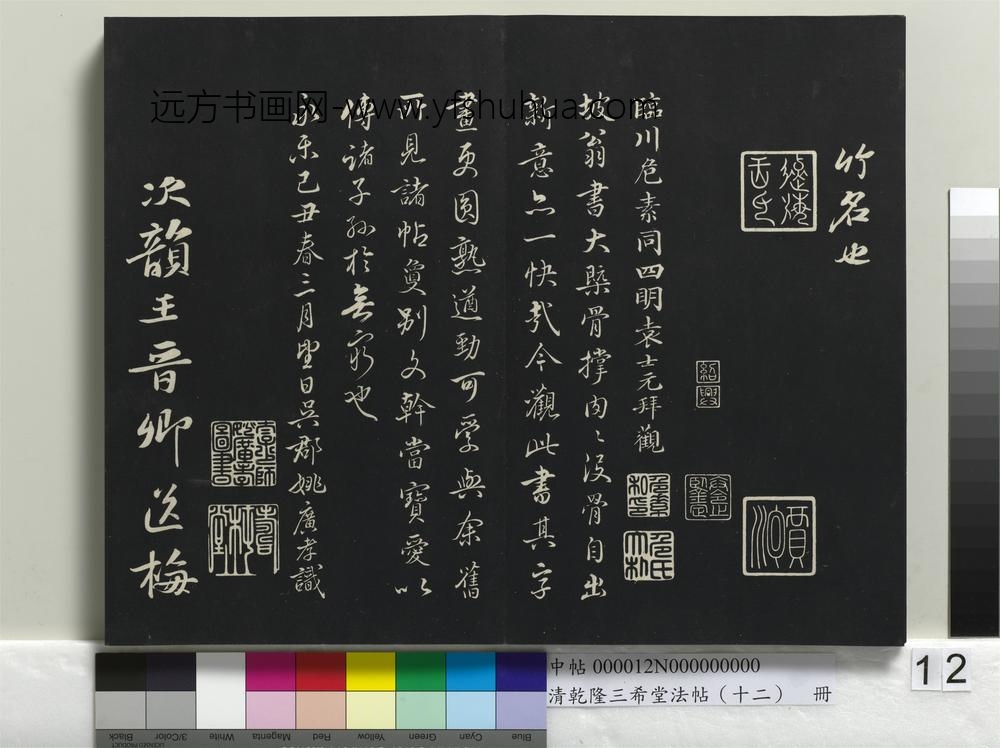 竹名也
臨川危素同四明袁士元拜觀
坡翁書大槩骨撑肉肉沒骨自出
新意亦一快哉今觀此書其字
畫更圓熟遒勁可愛與余舊
所見諸帖敻別文幹當寶愛以
傳諸子孫於無窮也
永樂己丑春三月望日吳郡姚廣孝識
次韻王晉卿送梅
紹興
危氏
太朴
賈
远方书画网-www.yfshuhua.com
中帖 000012N000000000
清乾隆三希堂法帖（十二） 冊
12
Black
3/Color
White
Magenta
Red
Yellow
Green
Cyan
Blue